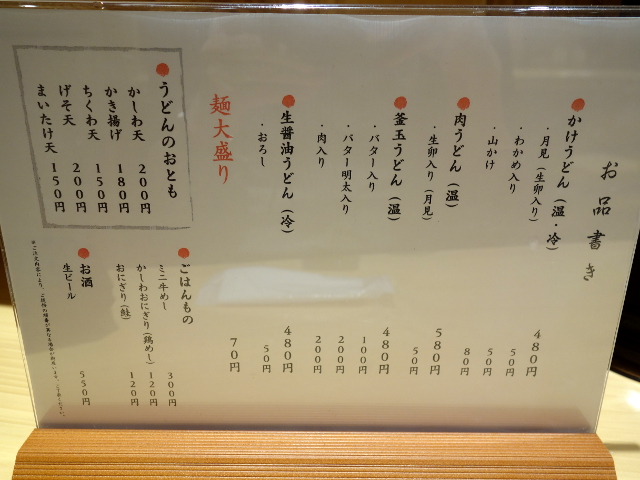 お品書き
●かけうどん（温・冷） 480円
・月見（生卵入り） 50円
・わかめ入り 50円
・山かけ 80円
●肉うどん（温） 580円
・生卵入り（月見） 50円
●釜玉うどん（温） 480円
・バター入り 100円
・バター明太入り 200円
・肉入り 200円
●生醤油うどん（冷） 480円
・おろし 50円
麺大盛り 70円
●うどんのおとも
かしわ天 200円
かき揚げ 180円
ちくわ天 150円
げそ天 200円
まいたけ天 150円
●ごはんもの
ミニ牛めし 300円
かしわおにぎり（鶏めし） 120円
おにぎり（鮭） 120円
●お酒
生ビール 550円
※ご注文内容により、ご提供の順番が異なる場合が有ります。ご了承ください。